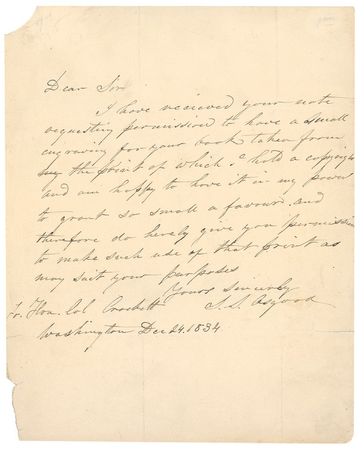 Dear Sir
I have recieved your note
requesting permission to have a small
engraving for your book taken from
my the print of which I hold a copyright
and am happy to have it in my power
to grant so small a favour and
therefore do hereby give you permission
to make such use of that print as
may suit your purposes
Yours sincerely
To Hon. Col Crockett S. S. Osgood
Washington Dec 24. 1834